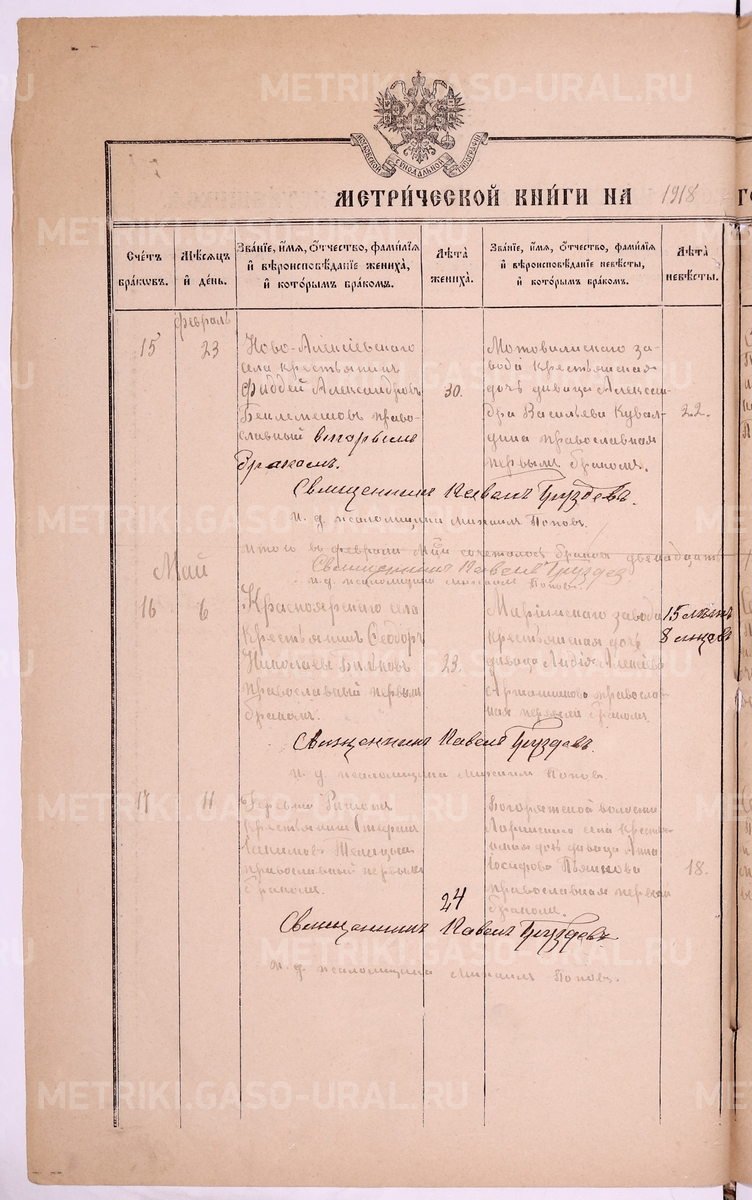 METRIKI.GASO-URAL.RU
МОСКОВСКОЙ СѴНОДАЛЬНОЙ ТИПОГРАФІИ
МЕТРИ́ЧЕСКОЙ КНИ́ГИ НА 1918
Сче́тъ бра́ковъ.
Мѣ́сяцъ и҆ де́нь.
Зва́нїе, и҆́мѧ, ѻ҆́тчество, фами́лїѧ и҆ вѣроисповѣ́данїе жениха̀, и҆ кото́рымъ бра́комъ.
Лѣ́та жениха̀.
Зва́нїе, и҆́мѧ, ѻ҆́тчество, фами́лїѧ и҆ вѣроисповѣ́данїе невѣ́сты, и҆ кото́рымъ бра́комъ.
Лѣ́та невѣ́сты.
Февраль
15
23
Ново-Алексѣевскаго
села крестьянинъ
Фаддей Александровъ
Беклемешовъ право-
славный вторымъ
бракомъ.
30.
Мотовилискаго за-
вода крестьянская
дочь дѣвица Алексан-
дра Васильева Кувал-
дина православная
первымъ бракомъ.
22.
Священникъ Павелъ Груздевъ.
и. д. псаломщика Михаилъ Поповъ.
Итого въ февралѣ м-цѣ сочеталось браковъ двенадцать
Священникъ Павелъ Груздев
и. д. псаломщика Михаилъ Поповъ.
Май
16
6
Красноярскаго села
крестьянинъ Ѳеодоръ
Николаевъ
православный первымъ
бракомъ.
23.
Маріинскаго завода
крестьянская дочь
дѣвица Лидія Алексѣева
православ-
ная первымъ бракомъ.
15 лѣтъ
8 мѣсцевъ
Священникъ Павелъ Груздевъ.
и. д. псаломщика Михаилъ Поповъ.
17
11
Деревни
крестьянинъ
православный первымъ
бракомъ.
24
волости
села кресть-
янская дочь дѣвица Анна
Іосифова Пьянкова
православная первым
бракомъ.
18.
Священникъ Павелъ Груздевъ
и. д. псаломщика Михаилъ Поповъ.